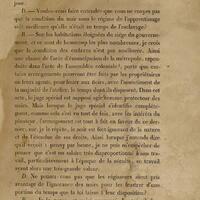 jour.
D. — Voulez-vous faire entendre que vous ne croyez pas
que la condition du noir sous le régime de l'apprentissage
soit meilleure qu'elle n'était au temps de l'esclavage?
R. — Sur les habitations éloignées du siège du gouverne-
ment, et ce sont de beaucoup les plus nombreuses, je crois
que la condition des enfants s'est pas améliorée. Ainsi
une clause de l'acte d'émancipation de la métropole, repro-
duite dans l'acte de l'assemblée coloniale, porte que cer-
tains arrangements pourront être faits par les propriétaires
ou leurs agents, pour fixer aux noirs, avec l'assentiment de
la majorité de l'atelier, le temps dont ils disposent. Dans cet
acte, le juge spécial est supposé agir comme protecteur des
noirs. Mais lorsque le juge spécial s'identifie complète-
ment, comme cela est trop souvent le cas, avec les intérêts du
planteur, l'arrangement est tout à fait en faveur de der-
nier; car, je le répète, le noir est fort ignorant de la nature
et de l'étendue de ses droits. Ainsi lorsque j'entends dire
qu'il reçoit 1 penny par heure, je ne puis m'empêcher de
penser que c'est un salaire très disproportionné à son tra-
vail, particulièrement à l'époque de la récolte, ce travail
ayant alors une très-grande valeur.
D. Ne pensez-vous pas que les régisseurs aient pris
avantage de l'ignorance des noirs pour les frustrer d'une
portion du temps que la loi laisse à leur disposition?